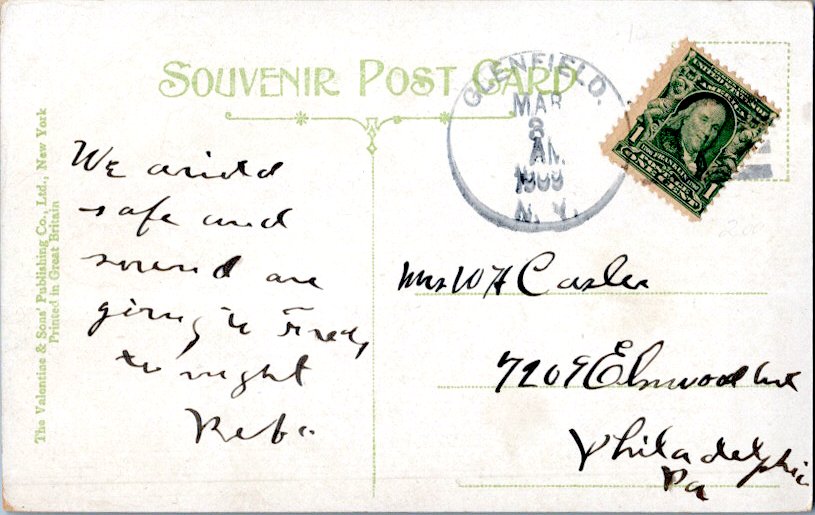 SOUVENIR POST CARD
The Valentine & Sons' Publishing Co., Ltd., New York
Printed in Great Britain
GLENFIELD.
MAR
8
AM
1909
N.Y.
1 1
ONE CENT
We arived
safe and
sound are
going to
to night
Reba
Mrs W H Casler
Elmwood Ave
Philadelphia
Pa